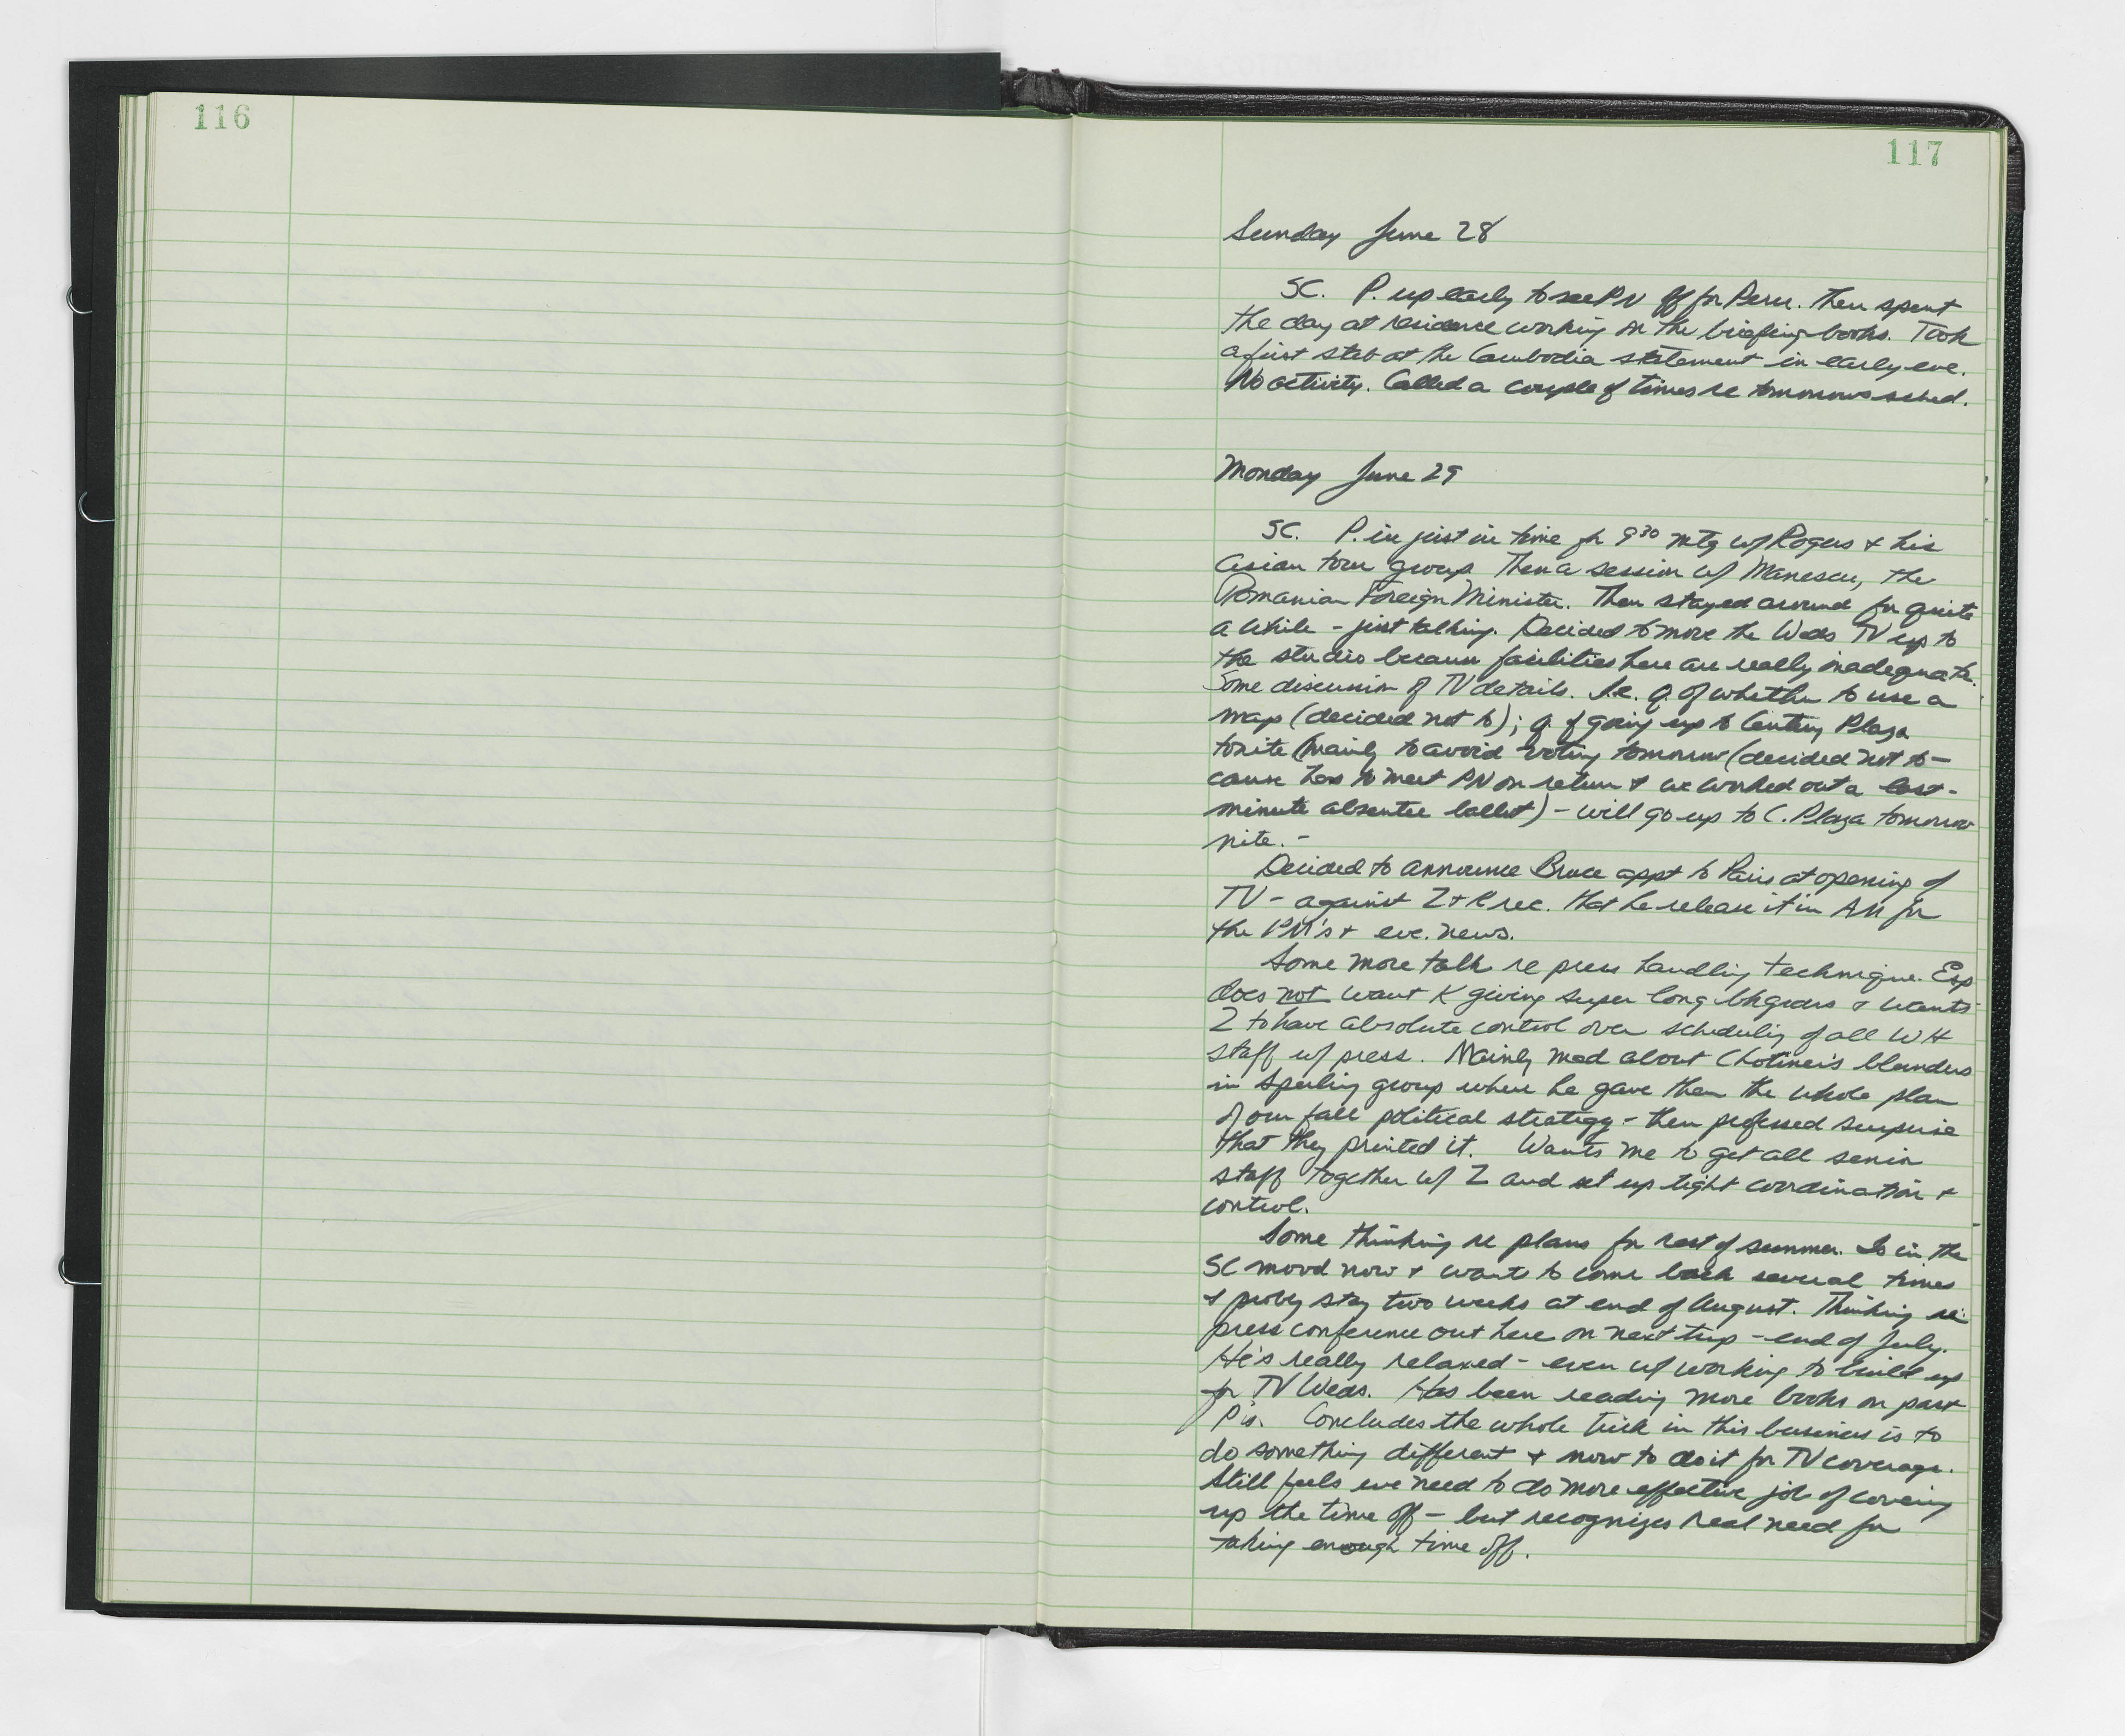 116
117
Sunday June 28
SC. P. up early to see PN off for Peru. Then spent
the day at residence working on the briefing books. Took
a first stab at the Cambodia statement in early eve.
No activity. Called a couple of times re tomorrows sched.
Monday June 29
SC. P. in just in time for 9³⁰ mtg w/ Rogers + his
Asian tour group. Then a session w/ Manescu, the
Romanian Foreign Minister. Then stayed around for quite
a while - just talking. Decided to move the Weds TV up to
the studio because facilities here are really inadequate.
Some discussion of TV details. I.e. Q. of whether to use a
map (decided not to); Q. of going up to Century Plaza
tonite (mainly to avoid voting tomorrow (decided not to -
cause has to meet PN on return & we worked out a last-
minute absentee ballot) - will go up to C. Plaza tomorrow
nite. -
Decided to announce Bruce appt to Paris at opening of
TV - against Z + K rec. that he release it in AM for
the PM's + eve. news.
Some more talk re press handling technique. Esp
does not want K giving super long bkgrdrs & wants
Z to have absolute control over scheduling of all WH
staff w/ press. Mainly mad about Chotiner's blunders
in Sperling group where he gave them the whole plan
of our fall political strategy - then professed surprise
that they printed it. Wants me to get all senior
staff together w/ Z and set up tight coordination +
control.
Some thinking re plans for rest of summer. Is in the
SC mood now & wants to come back several times
& probly stay two weeks at end of August. Thinking re:
press conference out here on next trip - end of July.
He's really relaxed - even w/ working to build up
for TV Weds. Has been reading more books on past
P's. Concludes the whole trick in this business is to
do something different & now to do it for TV coverage.
Still feels we need to do more effective job of covering
up the time off - but recognizes real need for
taking enough time off.